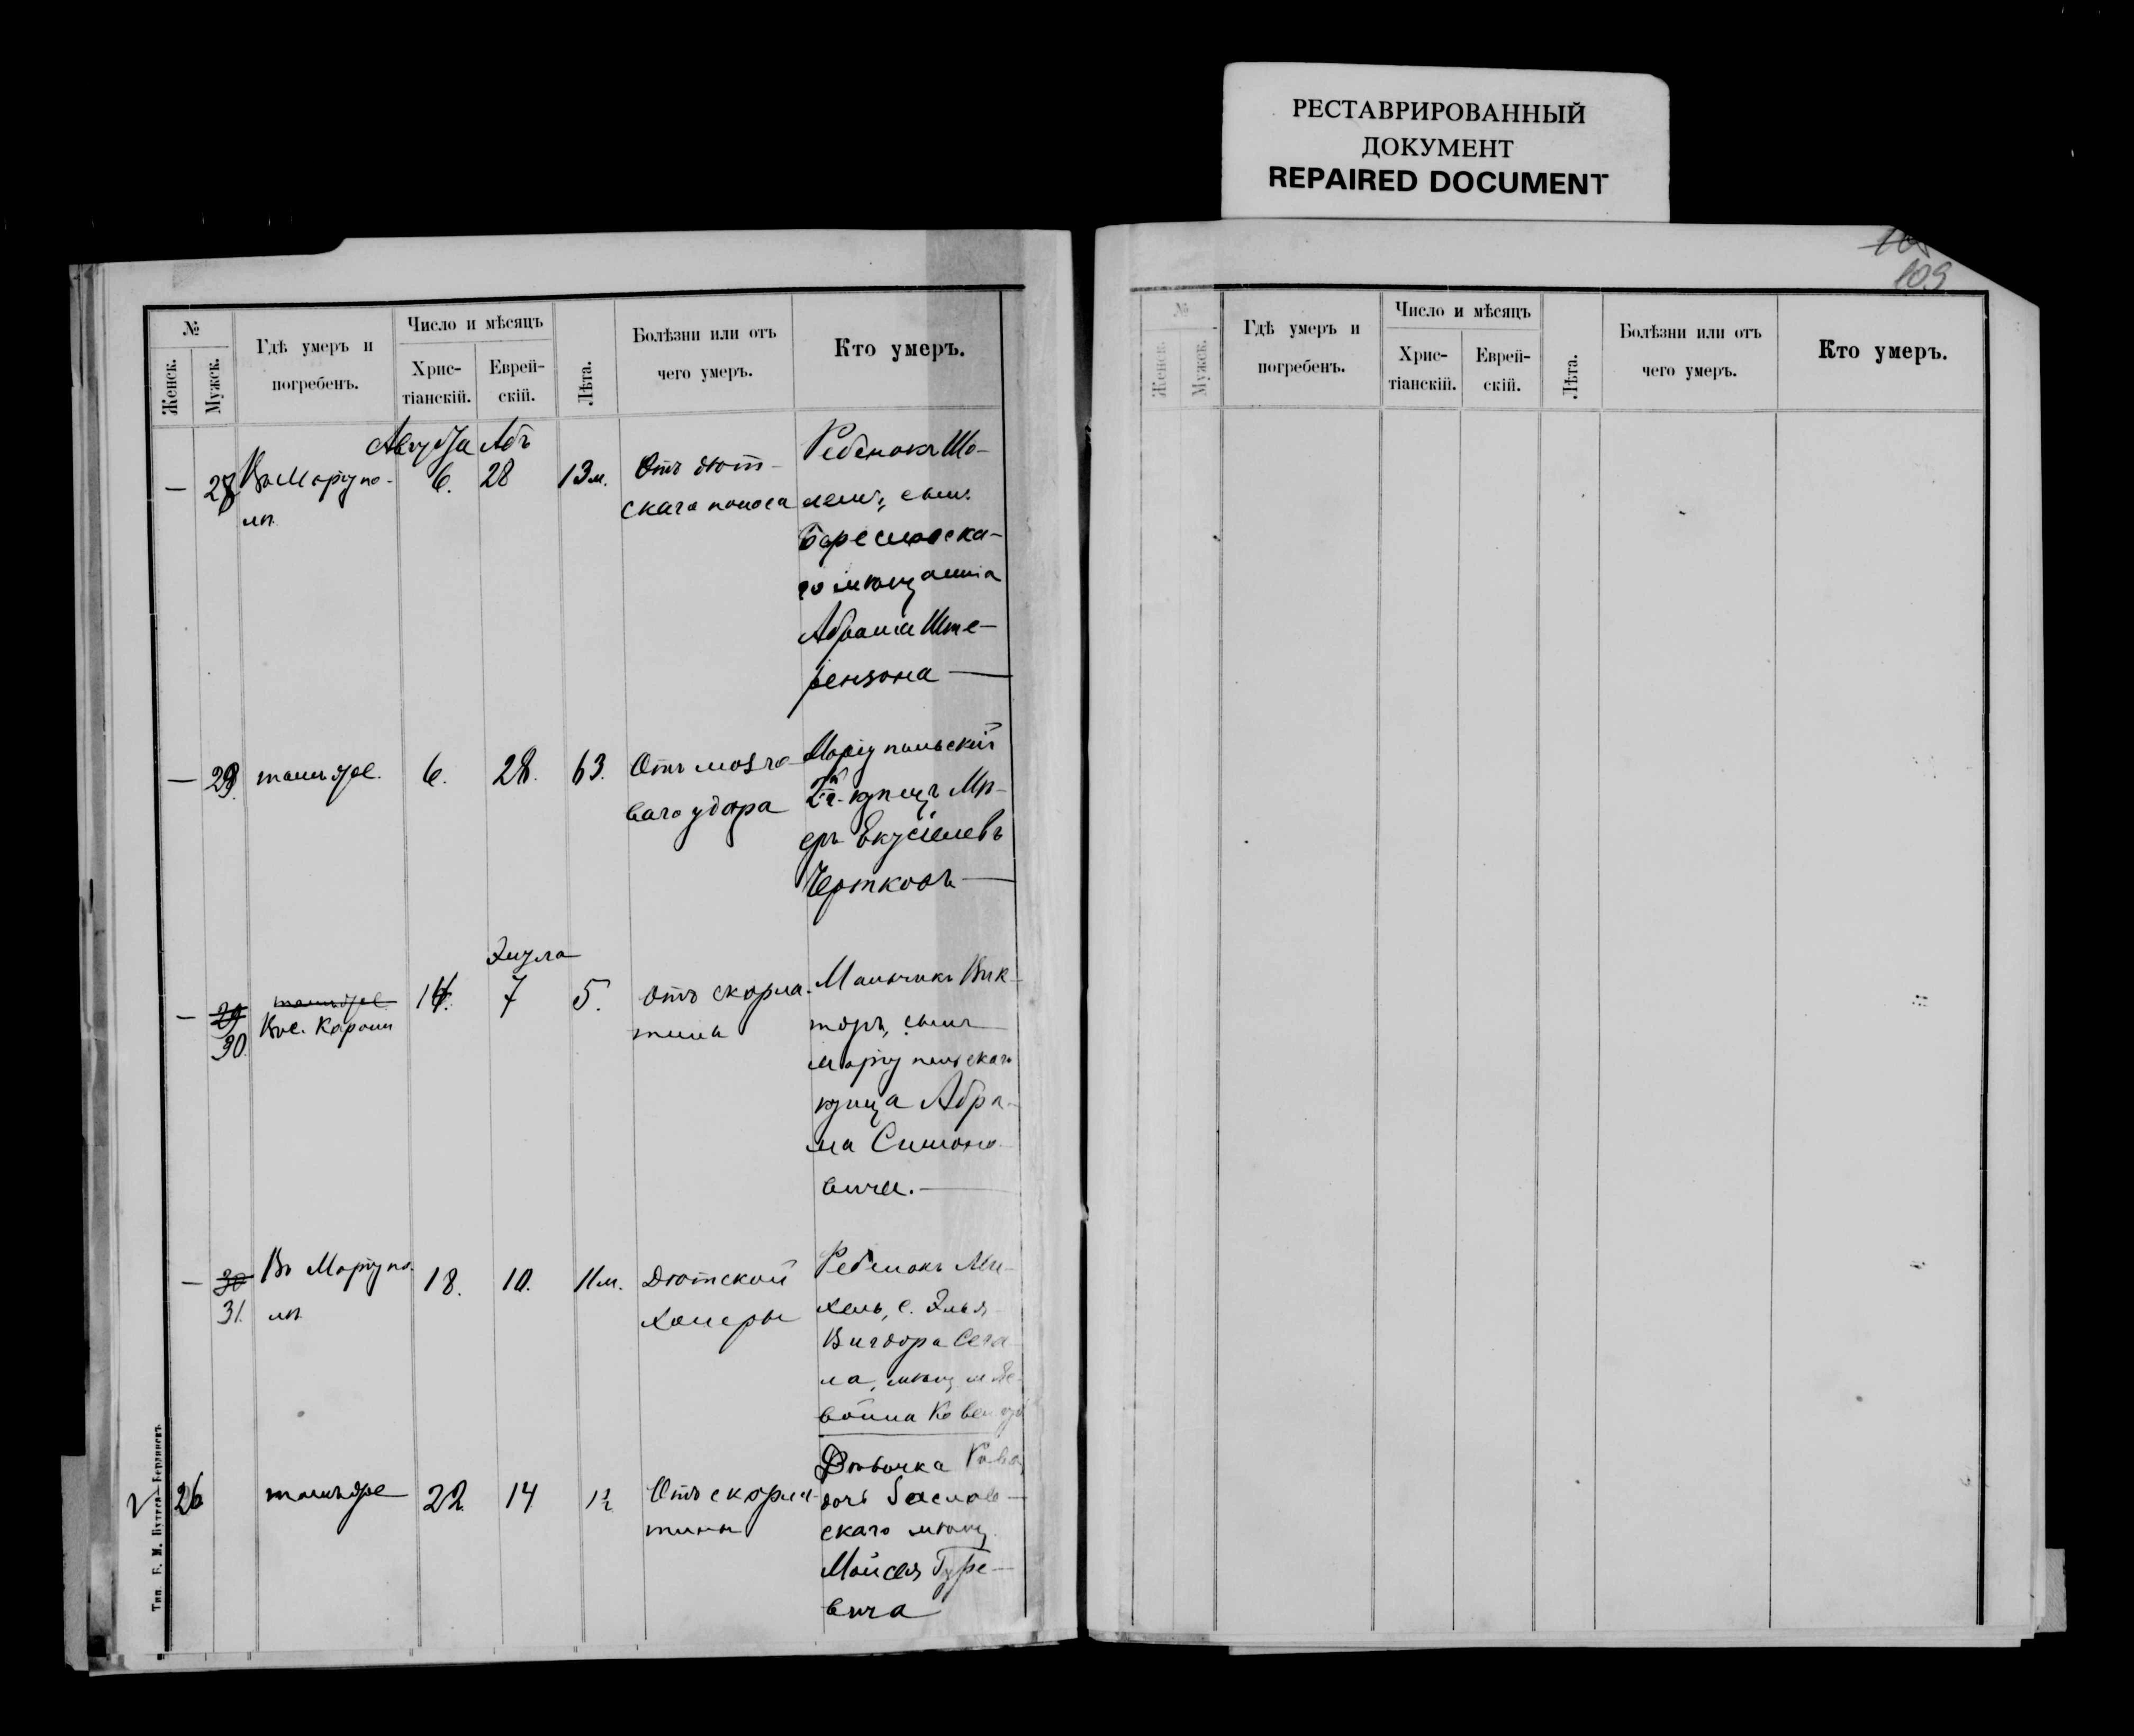 РЕСТАВРИРОВАННЫЙ
ДОКУМЕНТ
REPAIRED DOCUMENT
№
Женск.
Мужск.
Гдѣ умеръ и
погребенъ.
Число и мѣсяцъ
Хрис-
тіанскій.
Еврей-
скій.
Лѣта.
Болѣзни или отъ
чего умеръ.
Кто умеръ.
Августа Абъ
— 28 Въ Маріупо-
лѣ
6. 28 13 м.
Отъ дѣт-
скаго поноса
Ребенокъ Шо-
лемъ, сынъ
го мѣщанина
Абрама Ште-
рензона —
— 29. тамъ же. 6. 28. 63.
Отъ мозго-
ваго удара
Маріупольскій
2й г. купецъ Мѣ-
еръ Екусіелевъ
Чертковъ —
Элула
— 29 30. тамъ же
Кол.
14. 7 5.
Отъ скарла-
тина
Мальчикъ Вик-
торъ, сынъ
Маріупольскаго
купца Абра-
ма Симоно-
вича. —
— 30 31. Въ Маріупо-
лѣ
18. 10. 11 м.
Дѣтской
холеры
Ребенокъ Ми-
хель, с. Элья
Вигдора Сега-
ла, мѣщ. м.
26 тамъ же 22 14 1½
Отъ скарла-
тины
Дѣвочка
дочь Заслав-
скаго мѣщ.
Мойсея Гуре-
вича
Тип. Г. М. Бердянскъ.
109
№
Женск.
Мужск.
Гдѣ умеръ и
погребенъ.
Число и мѣсяцъ
Хрис-
тіанскій.
Еврей-
скій.
Лѣта.
Болѣзни или отъ
чего умеръ.
Кто умеръ.